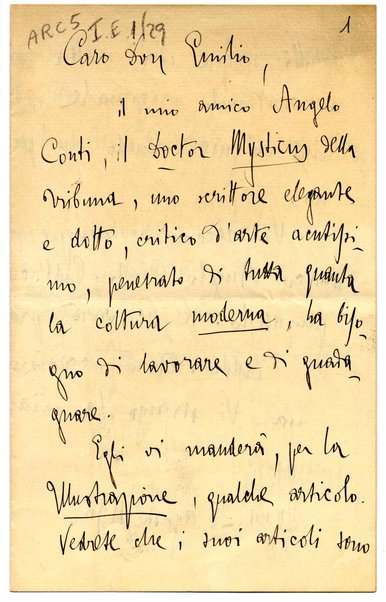 ARC 5 I.E 1/29
1
Caro Don Emilio,
il mio amico Angelo
Conti, il Doctor Mysticus della
Tribuna, uno scrittore elegante
e dotto, critico d'arte acutissi-
mo, penetrato di tutta quanta
la coltura moderna, ha biso-
gno di lavorare e di guada-
gnare.
Egli vi manderà, per la
Illustrazione, qualche articolo.
Vedrete che i suoi articoli sono